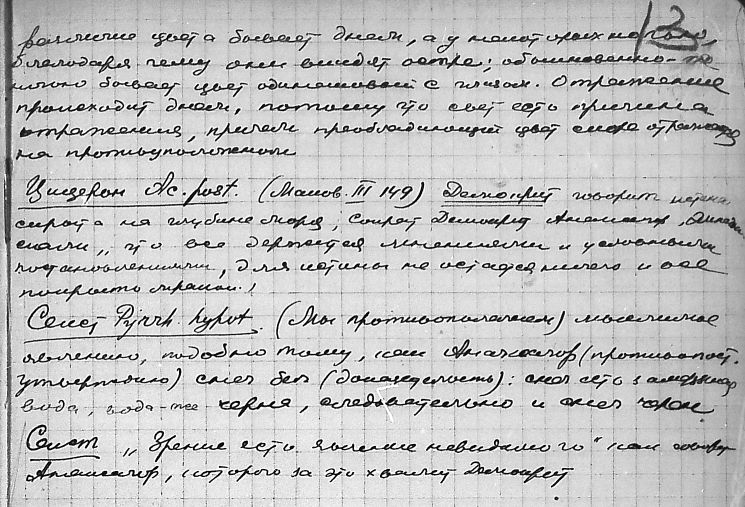 различие цвета бывает днем, а у некоторых ночью,
благодаря чему они видят остро; обыкновенно
только бывает цвет одинаковый с глазом. Отражение
происходит днем, потому что свет есть причина
отражения, причем преобладающий цвет скорее отражается
на противоположном
Цицерон Ac. post. (Маков. III 149) Демокрит говорит истина
сокрыта на глубине моря; Сократ Демокрит Анаксагор,
сказали, „что все держится мнениями и условными
постановлениями, для истины не остается ничего и все
покрыто мраком.“
Секст Pyrrh. hypot. (Мы противополагаем) мыслимое
явлению, подобно тому, как Анаксагор (противопост.
утверждению) снег бел (доказательность): снег есть замерзшая
вода, вода-же черна, следовательно и снег черен
Секст „Зрение есть явление невидимого“ как говорит
Анаксагор, которого за это хвалит Демокрит